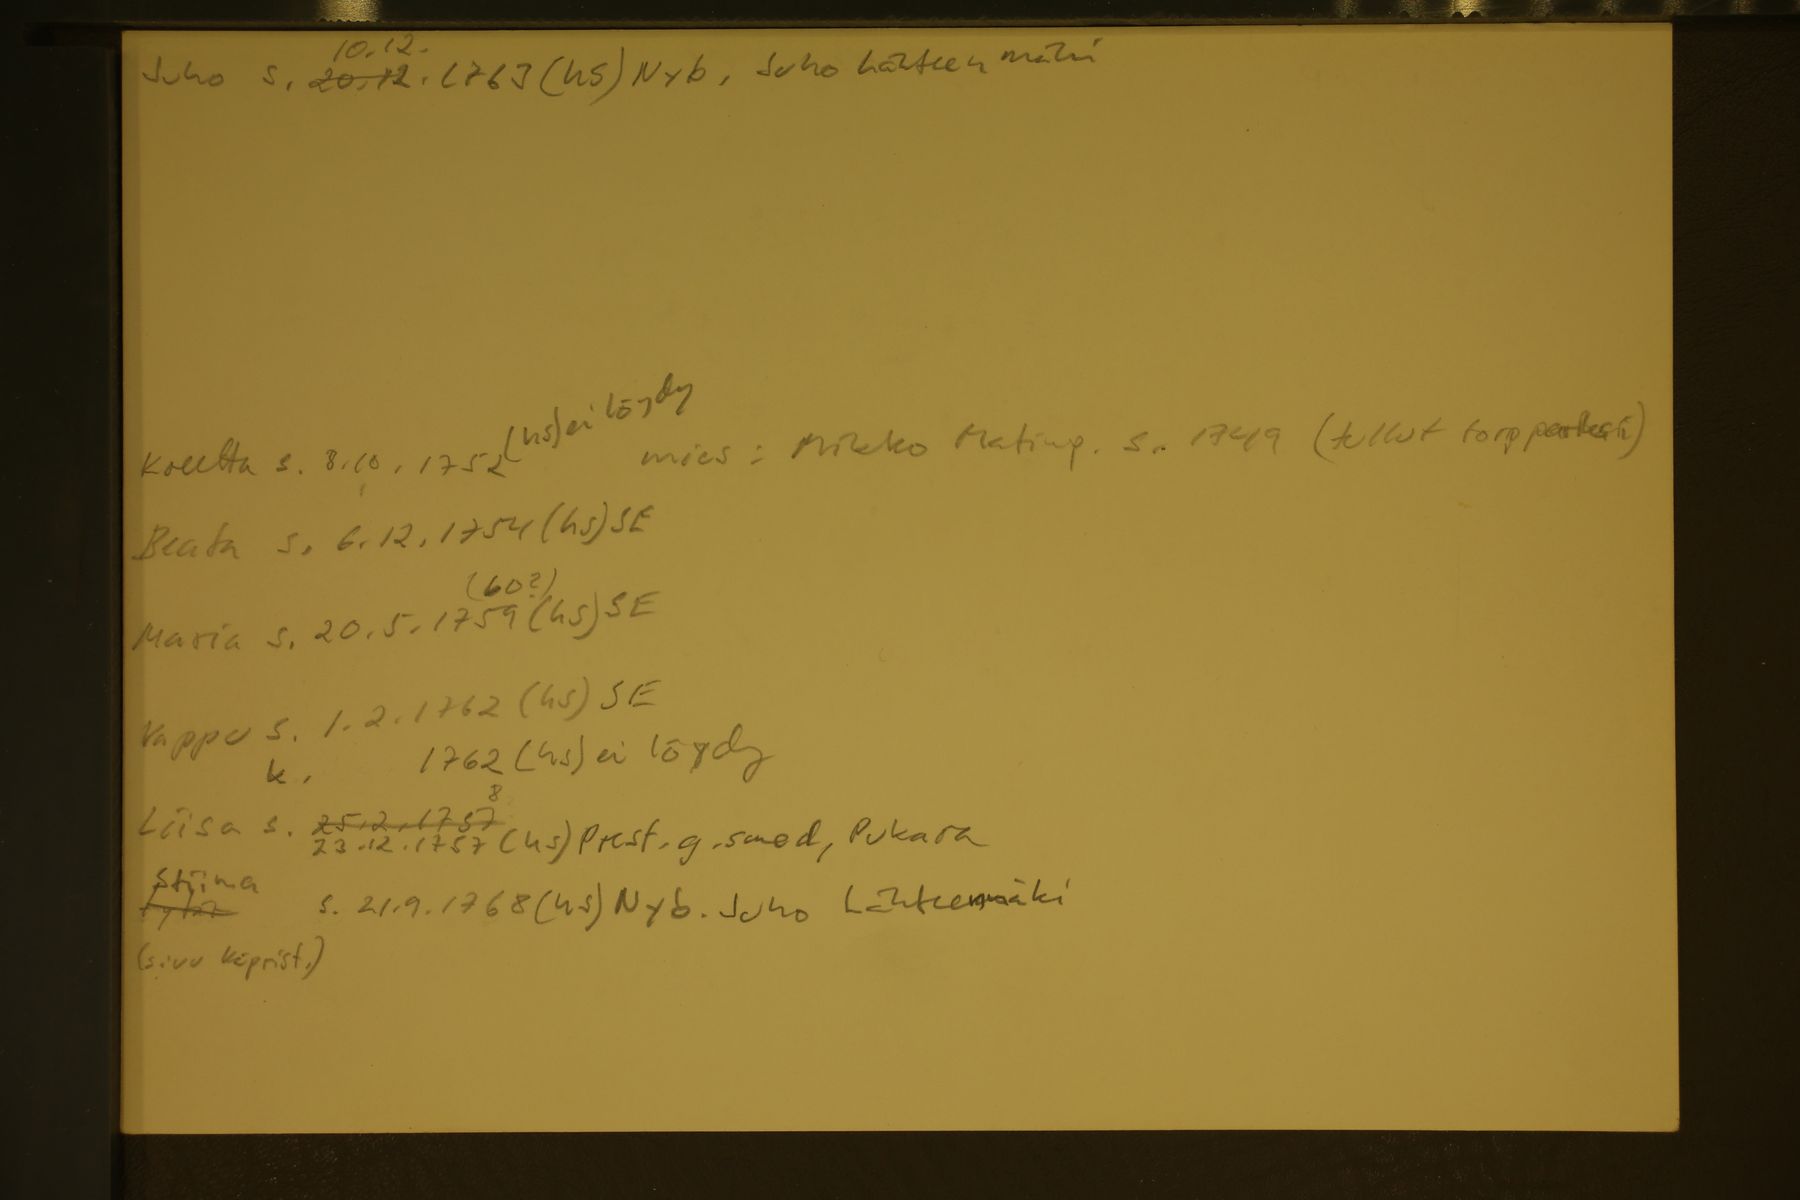 10.12.
Juho s. 20.12. 1763 (hs) Nyb. Juho Lähteenmäki
Kreetta s. 8.10. 1752 (hs) ei löydy mies: Mikko Matinp. s. 1749 (tullut torppariksi)
Beata s. 6.12.1754 (hs) SE
(60?)
Maria s. 20.5.1759 (hs) SE
Vappu s. 1.2.1762 (hs) SE
k. 1762 (hs) ei löydy
8
Liisa s. 25.2.1757
23.12.1757 (hs) Prest.g.smed, Pukara
Stiina
s. 21.9.1768 (hs) Nyb. Juho Lähteenmäki
(sivu köprist.)